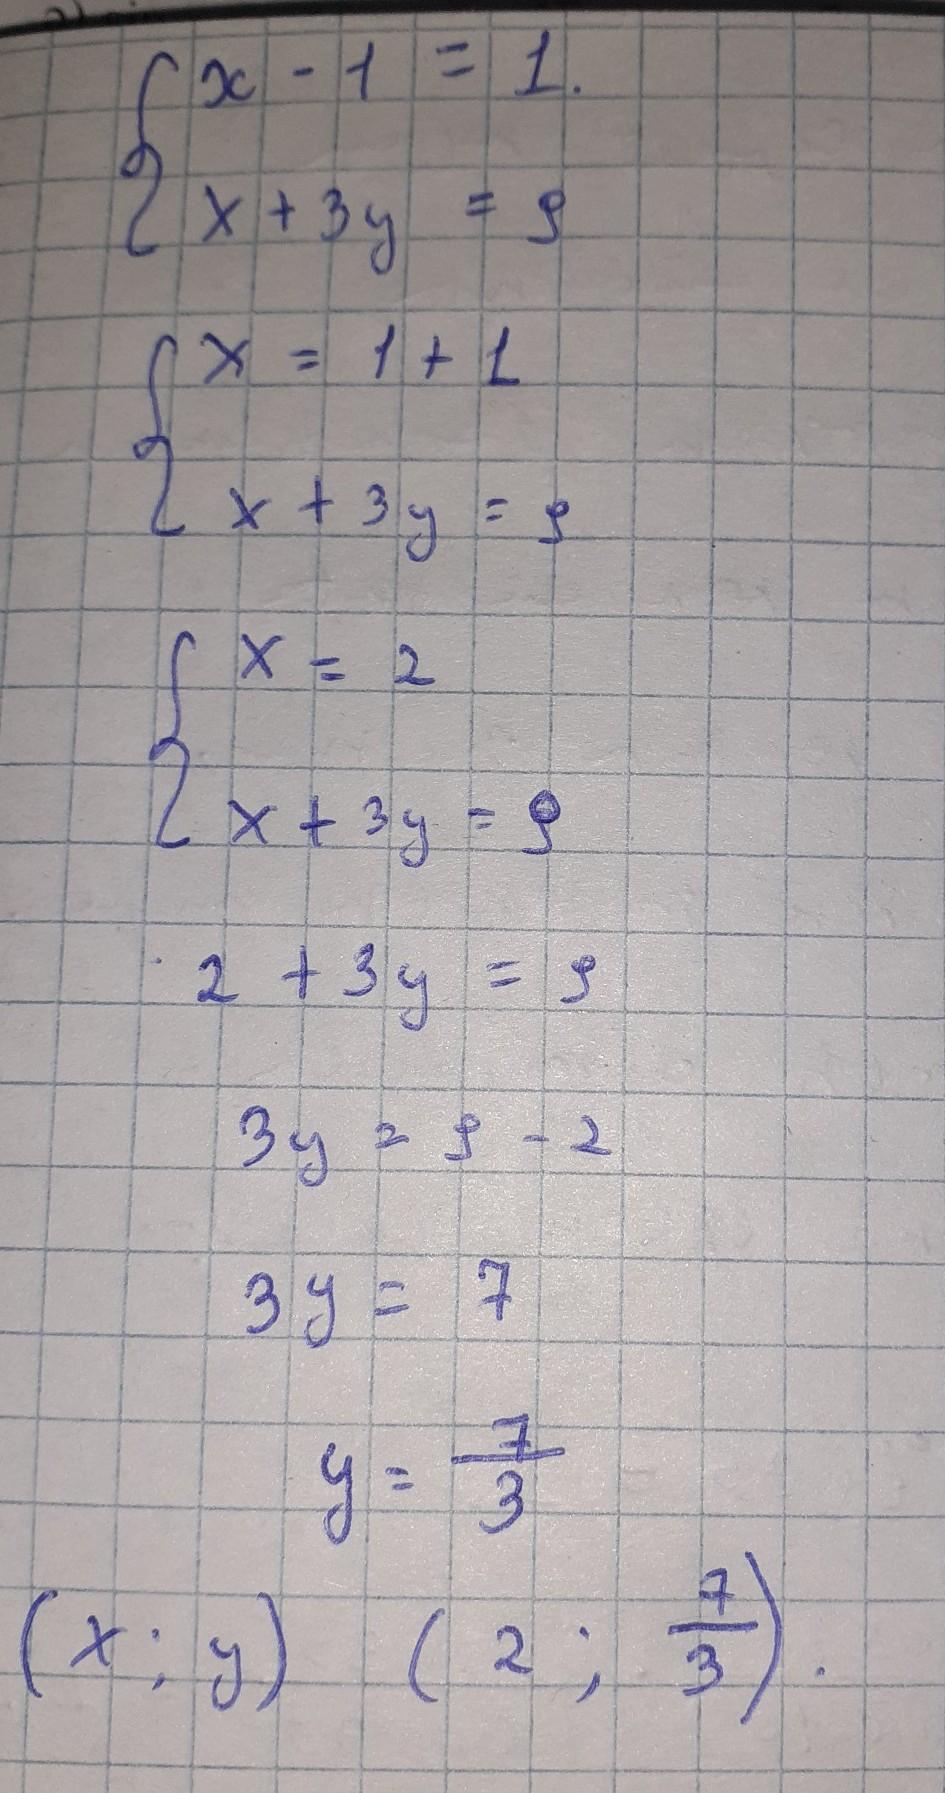 { x - 1 = 1.
x + 3y = 9
{ x = 1 + 1
x + 3y = 9
{ x = 2
x + 3y = 9
2 + 3y = 9
3y = 9 - 2
3y = 7
y = 7/3
(x; y) (2; 7/3).